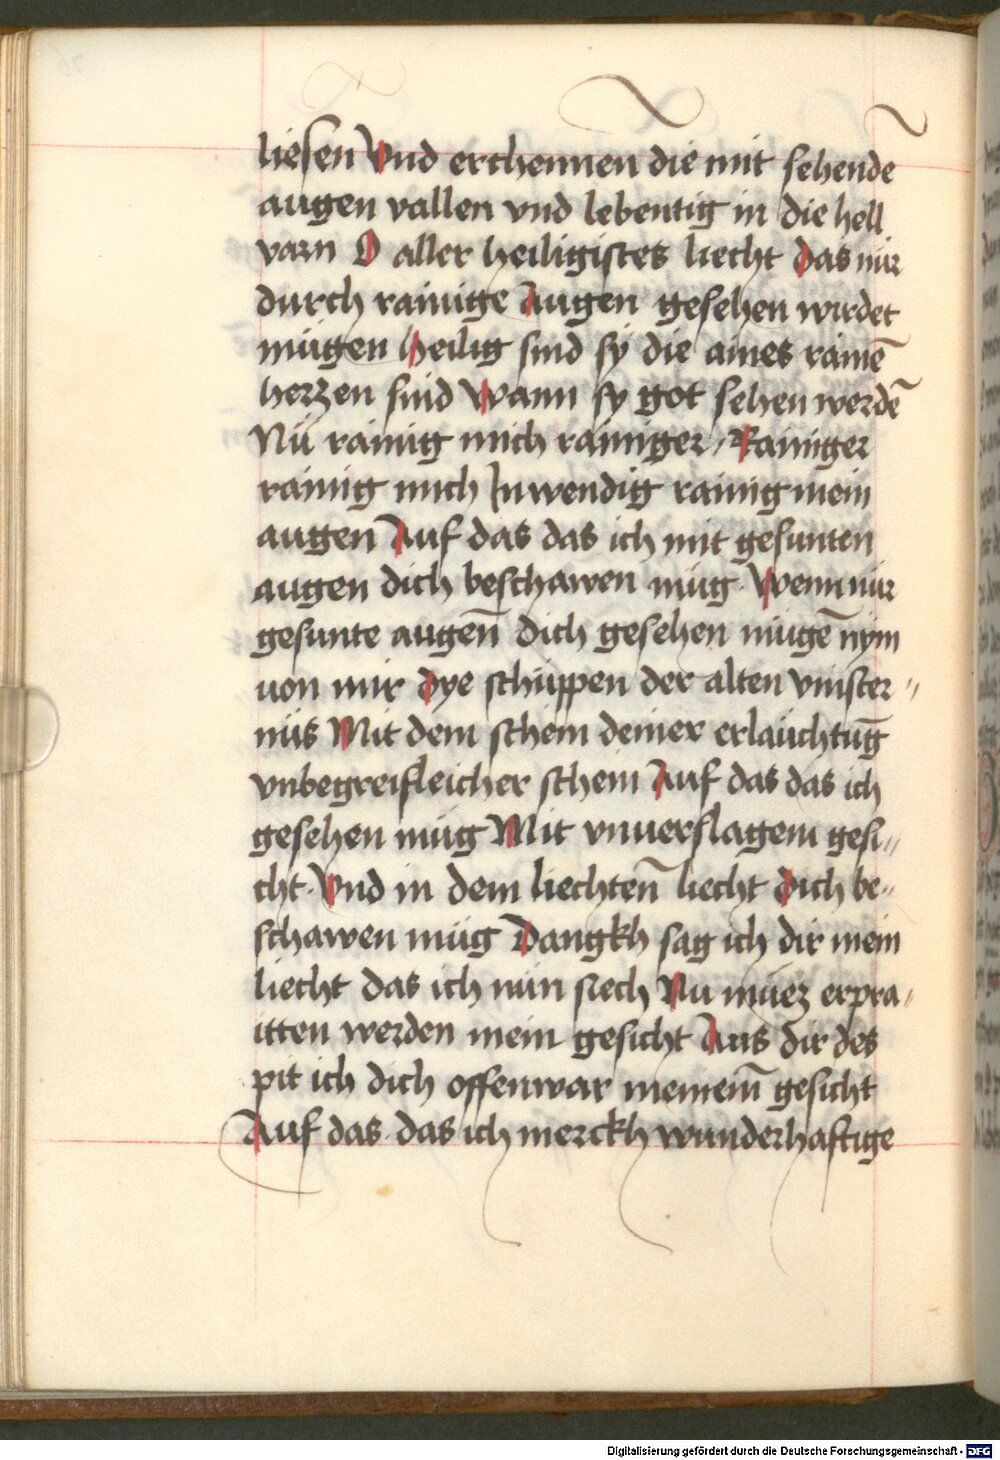 liesen Vnd erchennen die mit sehende
augen vallen vnd lebentig in die hell
varn O aller heiligistes liecht das nür
durch rainige Augen gesehen wirdet
mügen Heilig sind sy die aines rainē
herzen sind Wann sy got sehen werdē
Nü rainig mich rainiger / Rainiger
rainig mich Inwendig rainig mein
augen Auf das das ich mit gesunten
augen dich beschawen müg Wenn nür
gesunte augen̄ dich gesehen mügē nym
von mir dye schüppen der alten vinster〃
nüs Mit dem schein deiner erlaüchtūg
vnbegreifleicher schein Auf das das ich
gesehen müg Mit vnuerslagem gesi〃
cht · Vnd in dem liechten̄ liecht dich be〃
schawen müg Dangkh sag ich dir mein
liecht das ich nun siech Nu müez erpra〃
itten werden mein gesicht Aus dir des
pit ich dich offenwar meinem̄ gesicht
Auf das das ich merckh wunderhaftige
Digitalisierung gefördert durch die Deutsche Forschungsgemeinschaft - DFG